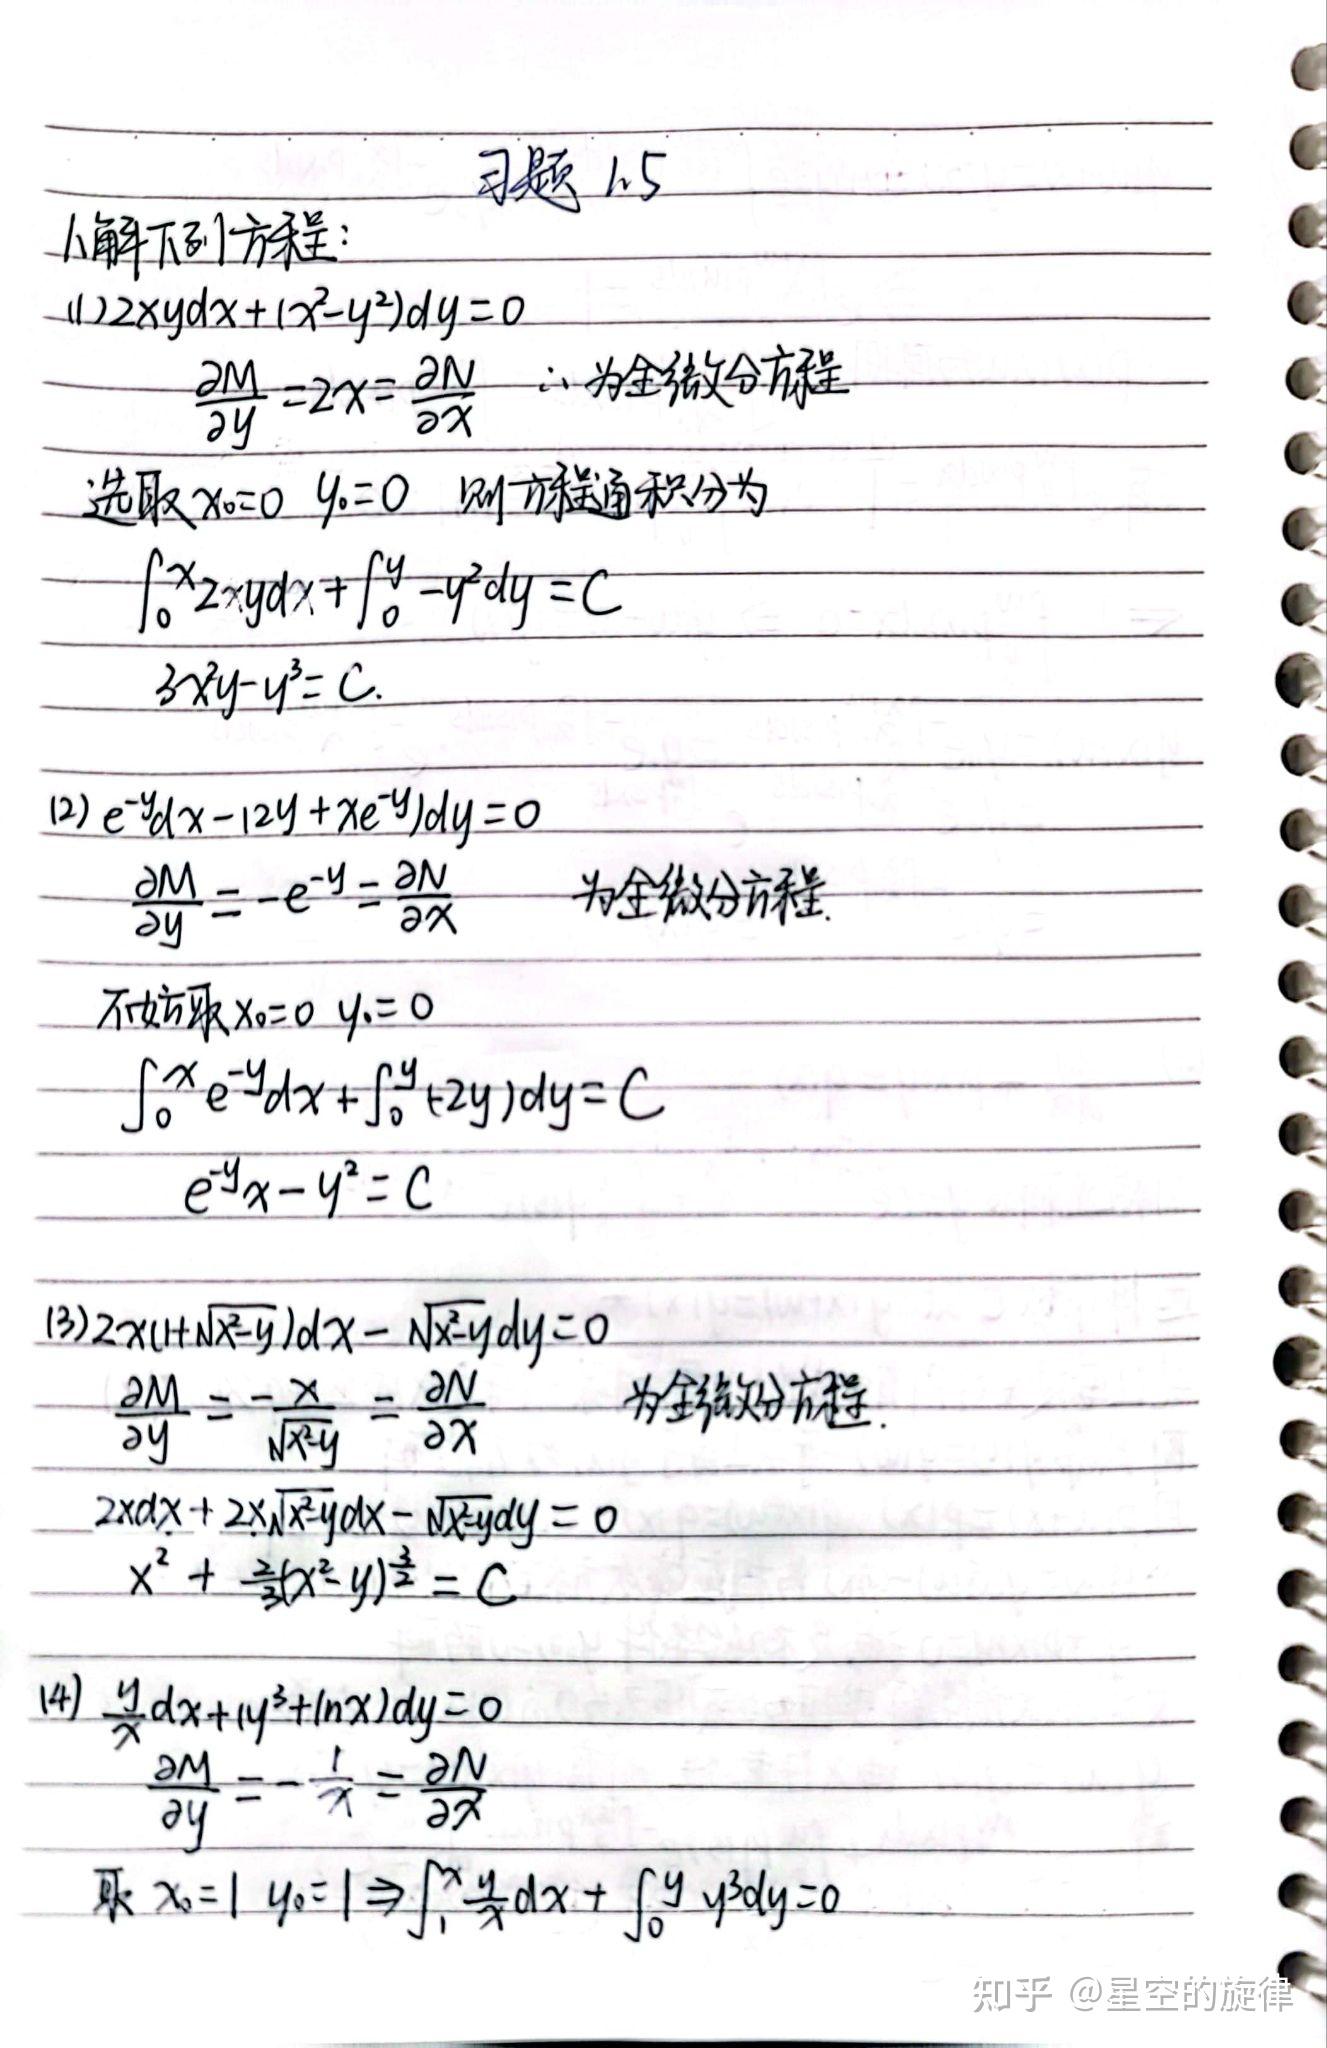 习题 1.5
1、解下列方程:
(1) 2xydx+(x²-y²)dy=0
∂M/∂y=2x=∂N/∂x ∴为全微分方程
选取 x₀=0 y₀=0 则方程通积分为
∫₀ˣ2xydx+∫₀ʸ-y²dy=C
3x²y-y³=C.
(2) e⁻ʸdx-(2y+xe⁻ʸ)dy=0
∂M/∂y=-e⁻ʸ=∂N/∂x 为全微分方程.
不妨取 x₀=0 y₀=0
∫₀ˣe⁻ʸdx+∫₀ʸ(-2y)dy=C
e⁻ʸx-y²=C
(3) 2x(1+√(x²-y))dx-√(x²-y)dy=0
∂M/∂y=-x/√(x²-y)=∂N/∂x 为全微分方程.
2xdx+2x√(x²-y)dx-√(x²-y)dy=0
x²+2/3(x²-y)^(3/2)=C
(4) y/x dx+(y³+lnx)dy=0
∂M/∂y=-1/x=∂N/∂x
取 x₀=1 y₀=1⇒∫₁ˣ y/x dx+∫₀ʸ y³dy=0
知乎 @星空的旋律